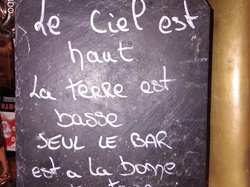 Le Ciel est
haut
La terre est
basse
SEUL LE BAR
est a la bonne